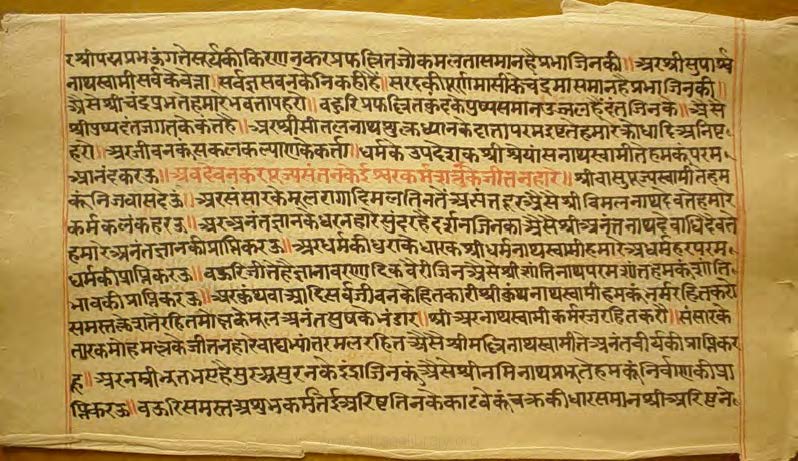 र श्रीपद्मप्रभऊंगते सूर्यकी किरणनकर प्रफुल्लित जो कमल ता समान है प्रभा जिनकी॥ अर श्री सुपार्श्व
नाथस्वामी सर्वके वेत्ता। सर्वज्ञ सबनके निकही हैं। सरदकी पूर्णमासीके चंद्रमा समान है प्रभा जिनकी॥
औसे श्रीचंद्रप्रभ ते हमारे भवताप हरो॥ बहुरि प्रफुल्लित कुंदके पुष्प समान उज्जल हैं दंत जिनके॥ औसे
श्रीपुष्पदंत जगतके कंत हैं॥ अर श्री सीतलनाथ सुक्लध्यानके दाता परम इष्ट ते हमारे क्रोधादि अनिष्ट
हरो॥ अर जीवनकूं सकल कल्याणके कर्ता। धर्मके उपदेशक श्री श्रेयांसनाथस्वामी ते हमकूं परम
आनंद करऊ॥ अर देवनकर पूज्य संतनके ईश्वर कर्मशत्रुके जीतनहार॥ श्रीवासुपूज्यस्वामी ते हम
कूं निजवास देऊं॥ अर संसारके मूल रागादि मल तिनतें अत्यंत दूर औसे श्री विमलनाथ देव ते हमारे
कर्मकलंक हरउ॥ अर अनंत ज्ञानके धरनहार सुंदर है दर्शन जिनका औसे श्री अनंतनाथ देवाधिदेव ते
हमारे अनंत ज्ञानकी प्राप्ति करऊ॥ अर धर्मकी धुराके धारक श्री धर्मनाथस्वामी हमारे अधर्म हर परम
धर्मकी प्राप्ति करऊ॥ बहुरि जीते है ज्ञानावरणादिक वैरी जिन औसे श्री शांतिनाथ परम शांत हमकूं शांति
भावकी प्राप्ति करऊ॥ अर कुंथवा आदि सर्व जीवनके हितकारी श्री कुंथनाथस्वामी हमकूं भ्रमरहित करो
समस्त क्लेशतें रहित मोक्षके मूल अनंत सुषके भंडार॥ श्री अरनाथ स्वामी कर्मरज रहित करो॥ संसारके
तारक मोहमल्लके जीतनहारे बाह्यभ्यंतर मलरहित औसे श्री मल्लिनाथस्वामी ते अनंतवीर्यकी प्राप्ति कर
हु॥ अर नम्रीभूत भए है सुर असुरनके इंद्र जिनकूं औसे श्री नमिनाथ प्रभु ते हमकूं निर्वाणकी प्रा
प्ति करऊ॥ बऊरि समस्त अशुभ कर्म तेई अरिष्ट तिनके काटवेकूं चक्रकी धार समान श्री अरिष्टने